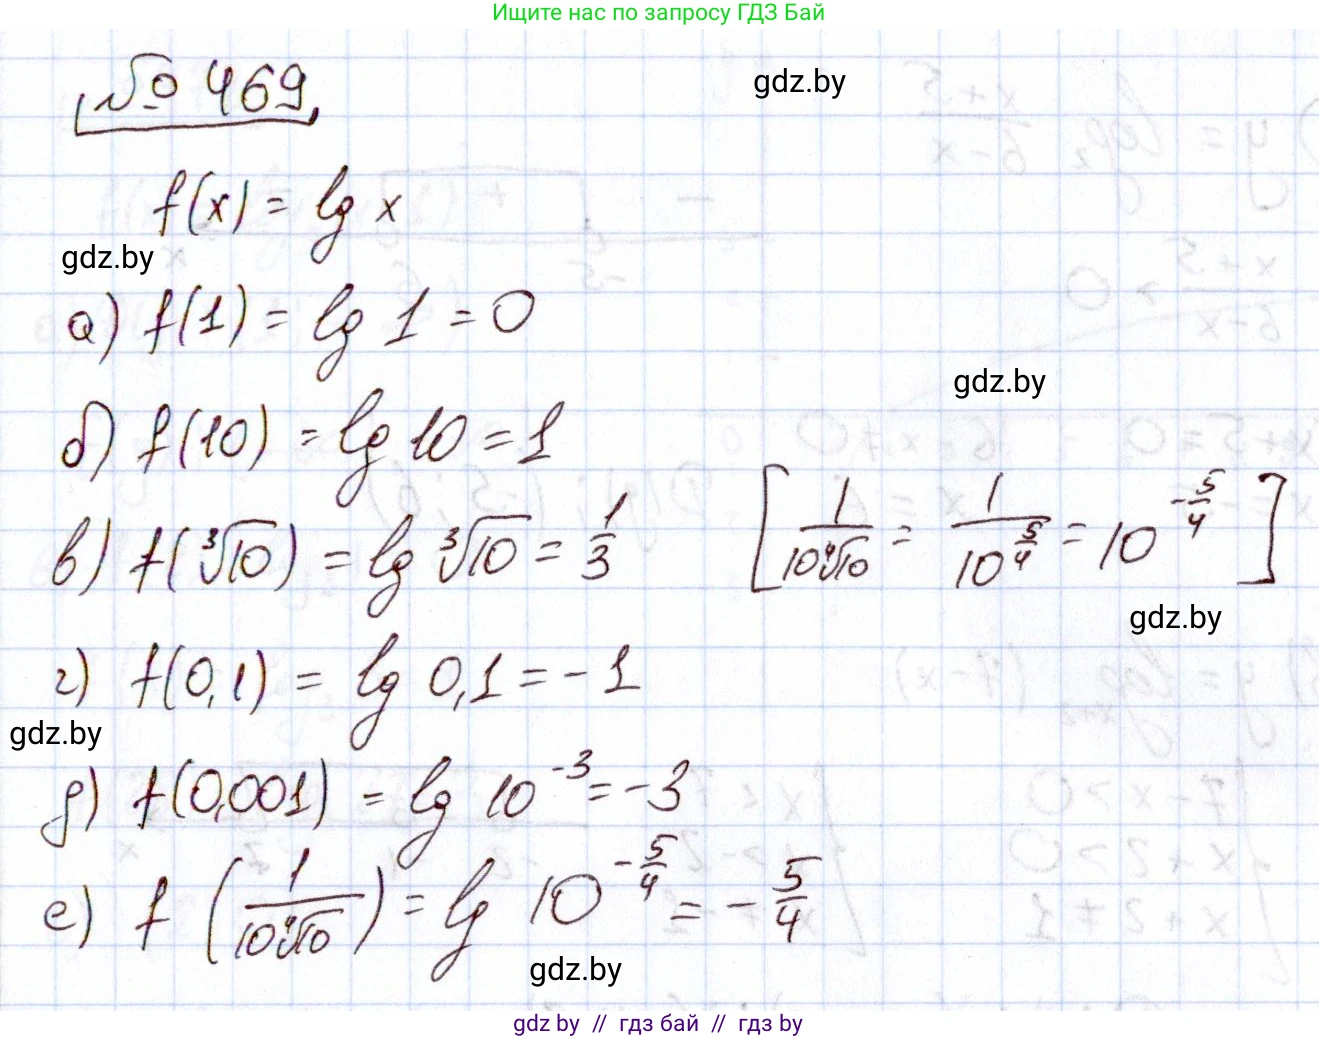 Ищите нас по запросу ГДЗ Бай
№ 469
gdz.by
f(x) = lg x
gdz.by
а) f(1) = lg 1 = 0
gdz.by
б) f(10) = lg 10 = 1
в) f(∛10) = lg ∛10 = 1/3 [1/(10∜10) = 1/10^(5/4) = 10^(-5/4)]
gdz.by
г) f(0,1) = lg 0,1 = -1
gdz.by
д) f(0,001) = lg 10^(-3) = -3
е) f(1/(10∜10)) = lg 10^(-5/4) = -5/4
gdz.by
gdz by // гдз бай // гдз by